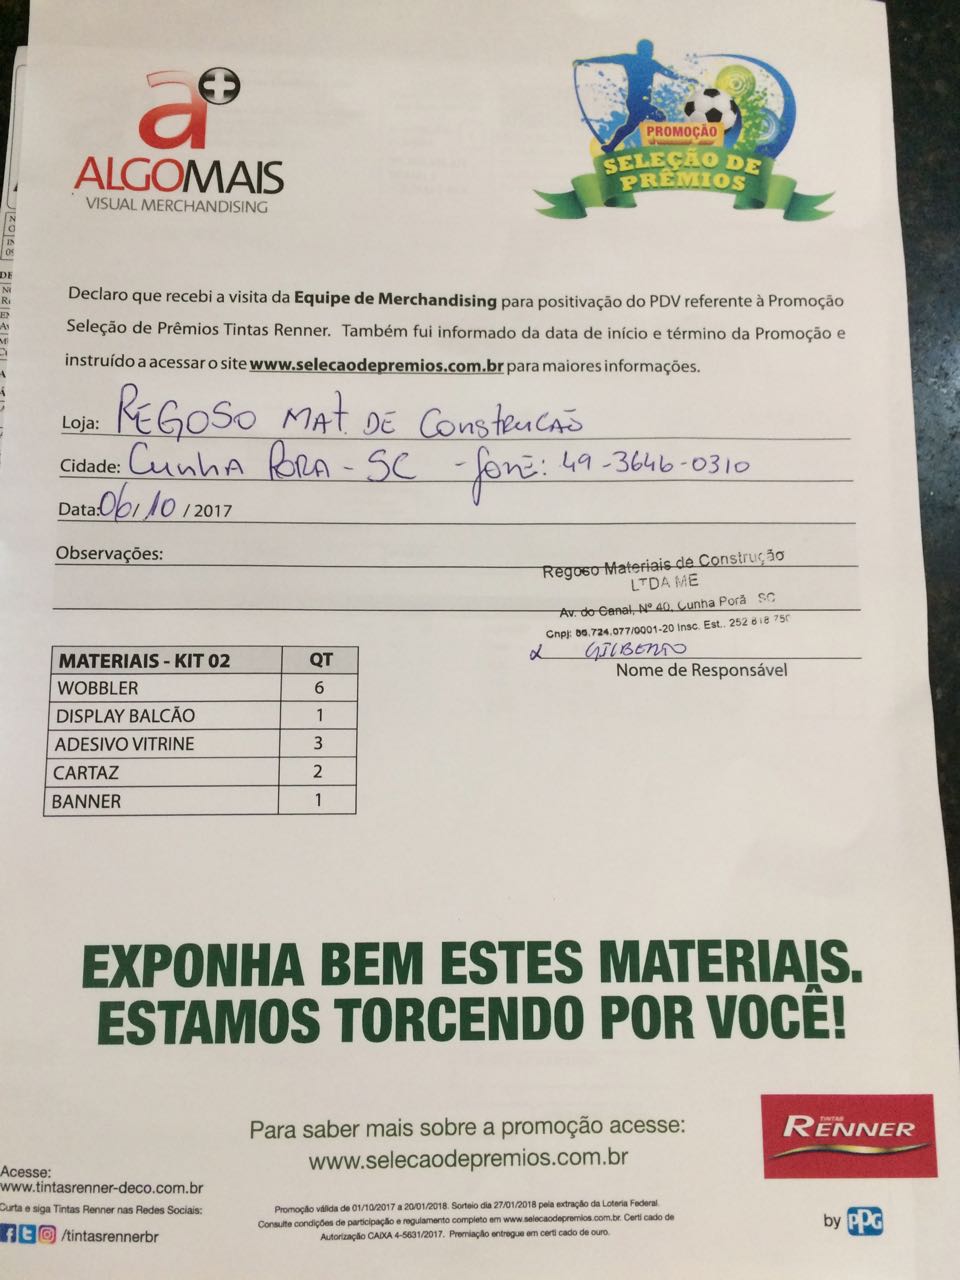 a+
ALGOMAIS
VISUAL MERCHANDISING
PROMOÇÃO
SELEÇÃO DE
PRÊMIOS
Declaro que recebi a visita da Equipe de Merchandising para positivação do PDV referente à Promoção
Seleção de Prêmios Tintas Renner. Também fui informado da data de início e término da Promoção e
instruído a acessar o site www.selecaodepremios.com.br para maiores informações.
Loja: REGOSO MAT. DE CONSTRUCÃO
Cidade: CUNHA PORA - SC - fone: 49-3646-0310
Data: 06/10/2017
Observações:
Regoso Materiais de Construção
LTDA ME
Av. do Canal, Nº 40, Cunha Porã SC
Cnpj: .724.077/0001-20 Insc. Est.. 252
GILBERTO
Nome de Responsável
MATERIAIS - KIT 02 QT
WOBBLER 6
DISPLAY BALCÃO 1
ADESIVO VITRINE 3
CARTAZ 2
BANNER 1
EXPONHA BEM ESTES MATERIAIS.
ESTAMOS TORCENDO POR VOCÊ!
Para saber mais sobre a promoção acesse:
www.selecaodepremios.com.br
TINTAS
RENNER
Acesse:
www.tintasrenner-deco.com.br
Curta e siga Tintas Renner nas Redes Sociais:
/tintasrennerbr
Promoção válida de 01/10/2017 a 20/01/2018. Sorteio dia 27/01/2018 pela extração da Loteria Federal.
Consulte condições de participação e regulamento completo em www.selecaodepremios.com.br. Certi cado de
Autorização CAIXA 4-5631/2017. Premiação entregue em certi cado de ouro.
by PPG